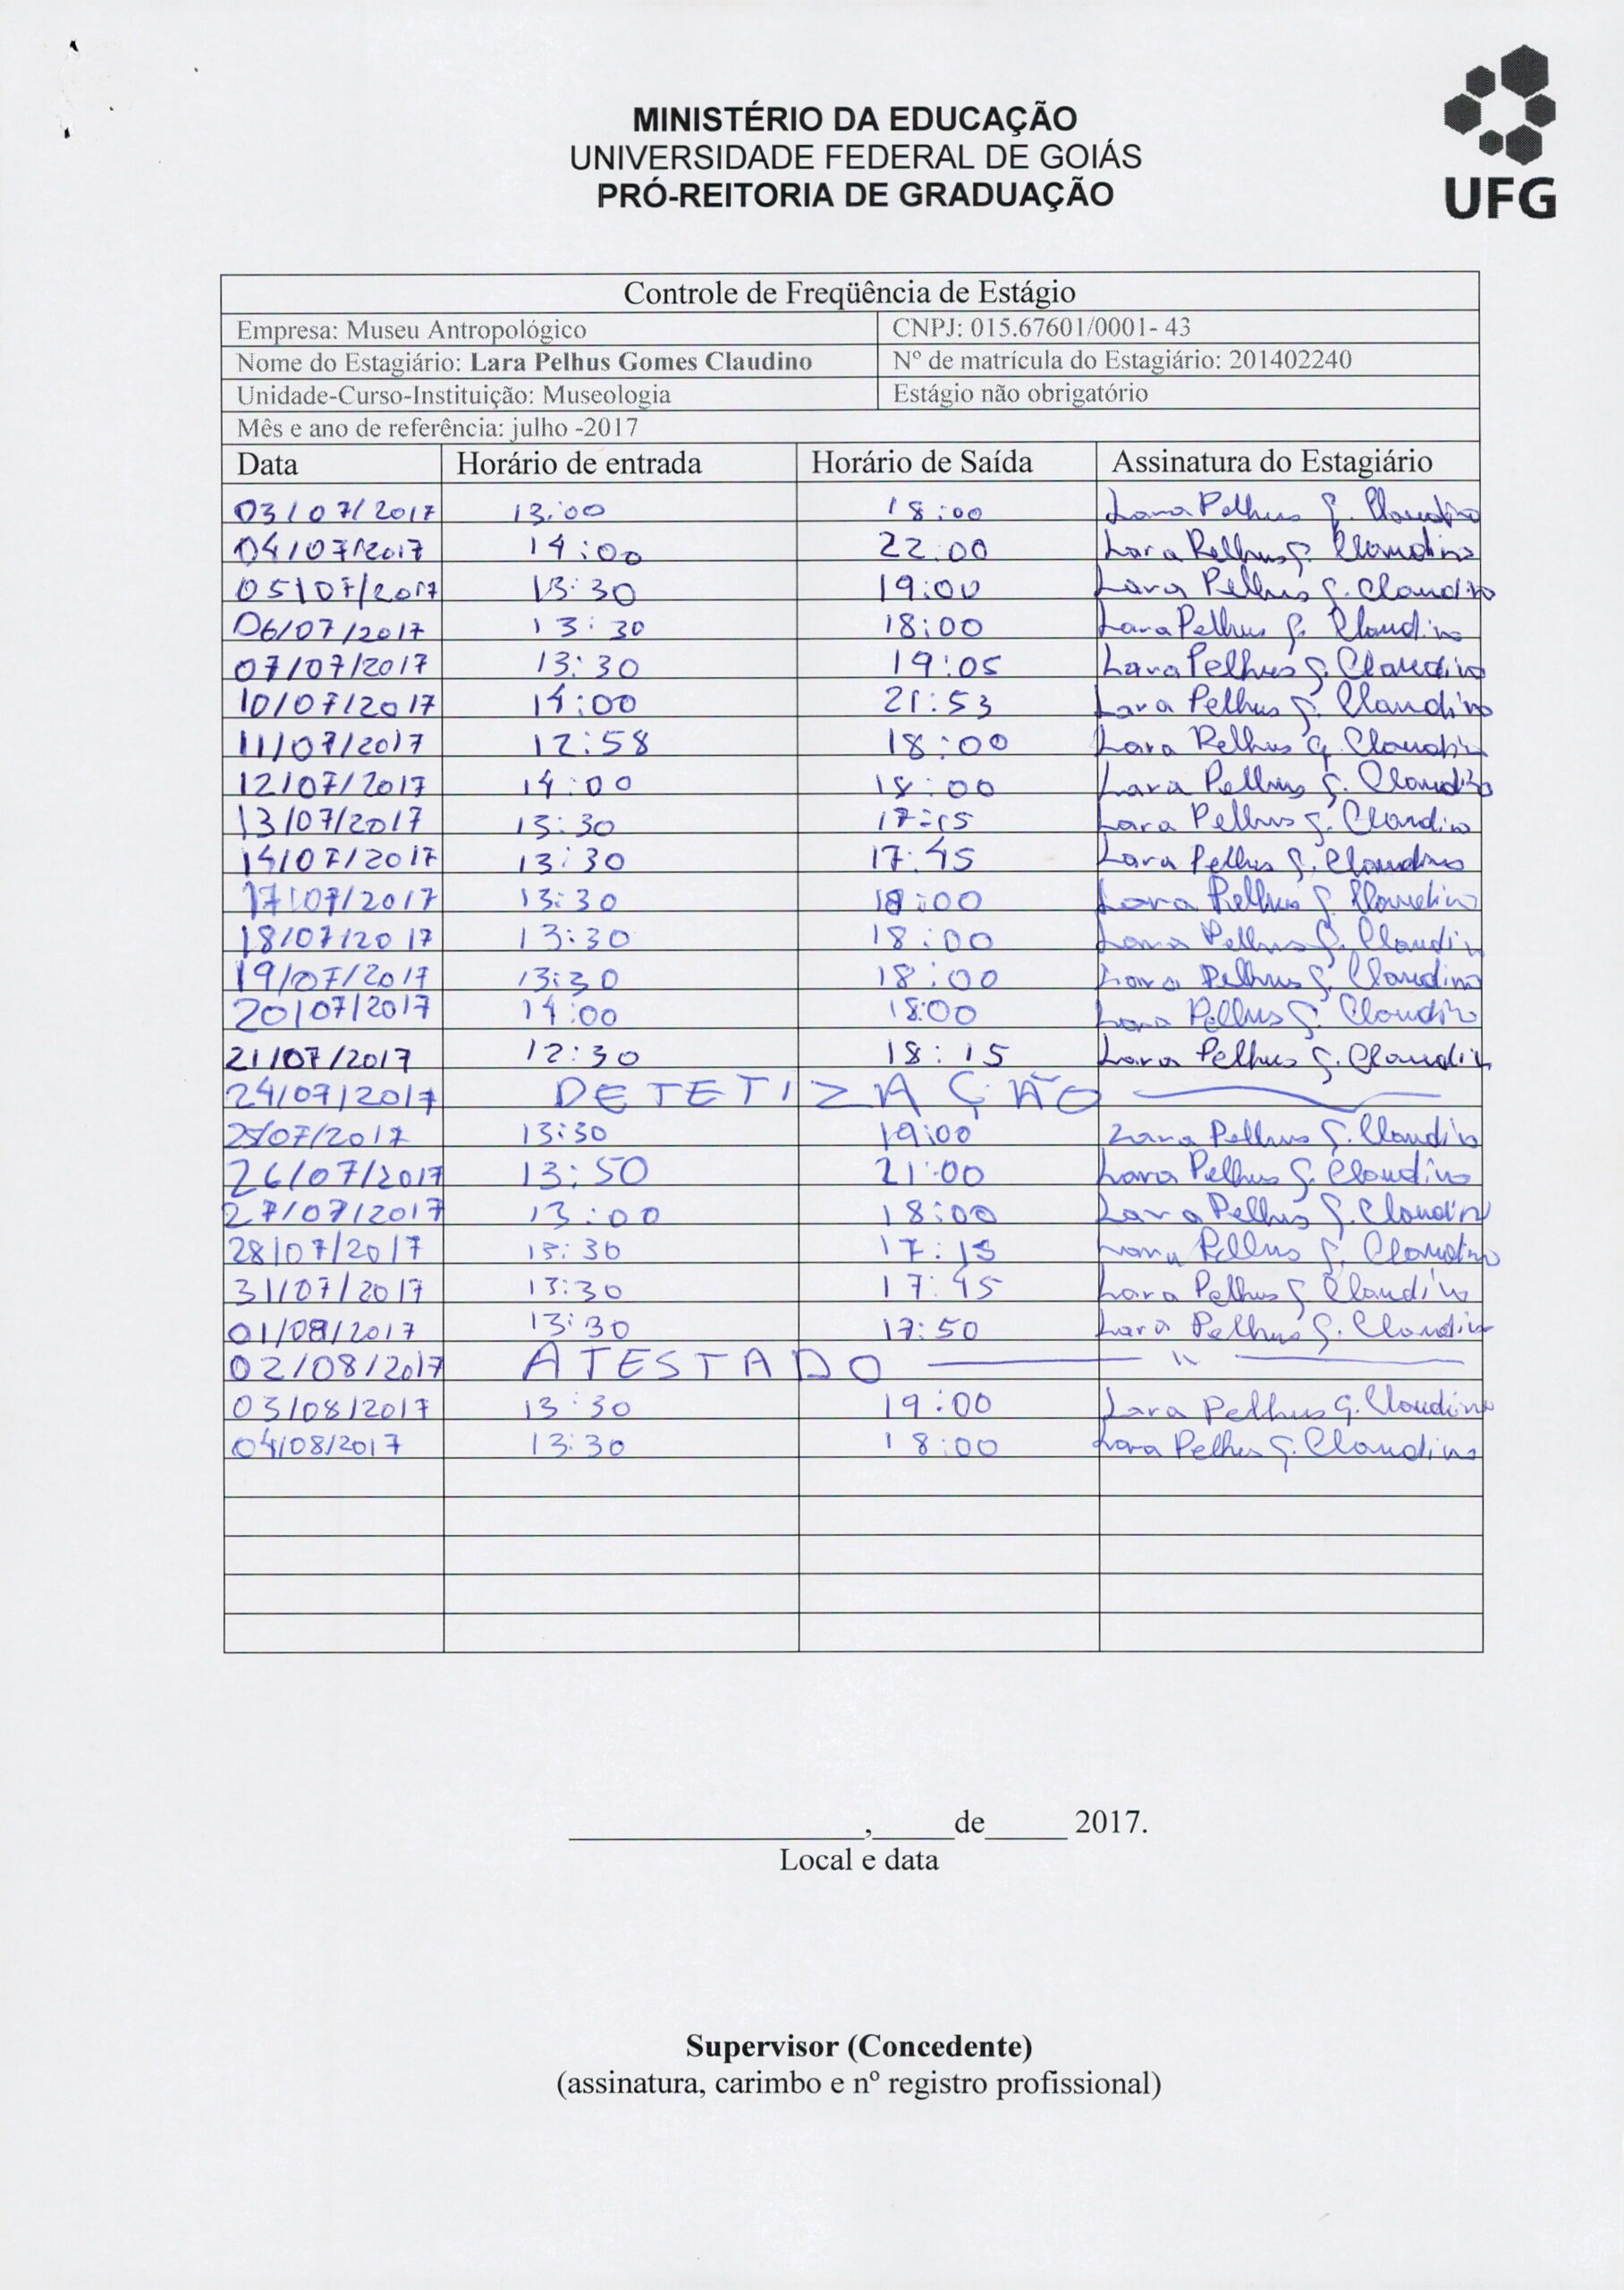 MINISTÉRIO DA EDUCAÇÃO
UNIVERSIDADE FEDERAL DE GOIÁS
PRÓ-REITORIA DE GRADUAÇÃO
UFG
Controle de Freqüência de Estágio
Empresa: Museu Antropológico CNPJ: 015.67601/0001- 43
Nome do Estagiário: Lara Pelhus Gomes Claudino Nº de matrícula do Estagiário: 201402240
Unidade-Curso-Instituição: Museologia Estágio não obrigatório
Mês e ano de referência: julho -2017
Data Horário de entrada Horário de Saída Assinatura do Estagiário
03/07/2017 13:00 18:00 Lara Pelhus G. Claudino
04/07/2017 14:00 22:00 Lara Pelhus G. Claudino
05/07/2017 13:30 19:00 Lara Pelhus G. Claudino
06/07/2017 13:30 18:00 Lara Pelhus G. Claudino
07/07/2017 13:30 19:05 Lara Pelhus G. Claudino
10/07/2017 14:00 21:53 Lara Pelhus G. Claudino
11/07/2017 12:58 18:00 Lara Pelhus G. Claudino
12/07/2017 14:00 18:00 Lara Pelhus G. Claudino
13/07/2017 13:30 17:15 Lara Pelhus G. Claudino
14/07/2017 13:30 17:45 Lara Pelhus G. Claudino
17/07/2017 13:30 18:00 Lara Pelhus G. Claudino
18/07/2017 13:30 18:00 Lara Pelhus G. Claudino
19/07/2017 13:30 18:00 Lara Pelhus G. Claudino
20/07/2017 14:00 18:00 Lara Pelhus G. Claudino
21/07/2017 12:30 18:15 Lara Pelhus G. Claudino
24/07/2017 DETETIZAÇÃO
25/07/2017 13:30 19:00 Lara Pelhus G. Claudino
26/07/2017 13:50 21:00 Lara Pelhus G. Claudino
27/07/2017 13:00 18:00 Lara Pelhus G. Claudino
28/07/2017 13:30 17:15 Lara Pelhus G. Claudino
31/07/2017 13:30 17:45 Lara Pelhus G. Claudino
01/08/2017 13:30 17:50 Lara Pelhus G. Claudino
02/08/2017 ATESTADO "
03/08/2017 13:30 19:00 Lara Pelhus G. Claudino
04/08/2017 13:30 18:00 Lara Pelhus G. Claudino
__________________,_____de_____ 2017.
Local e data
Supervisor (Concedente)
(assinatura, carimbo e nº registro profissional)